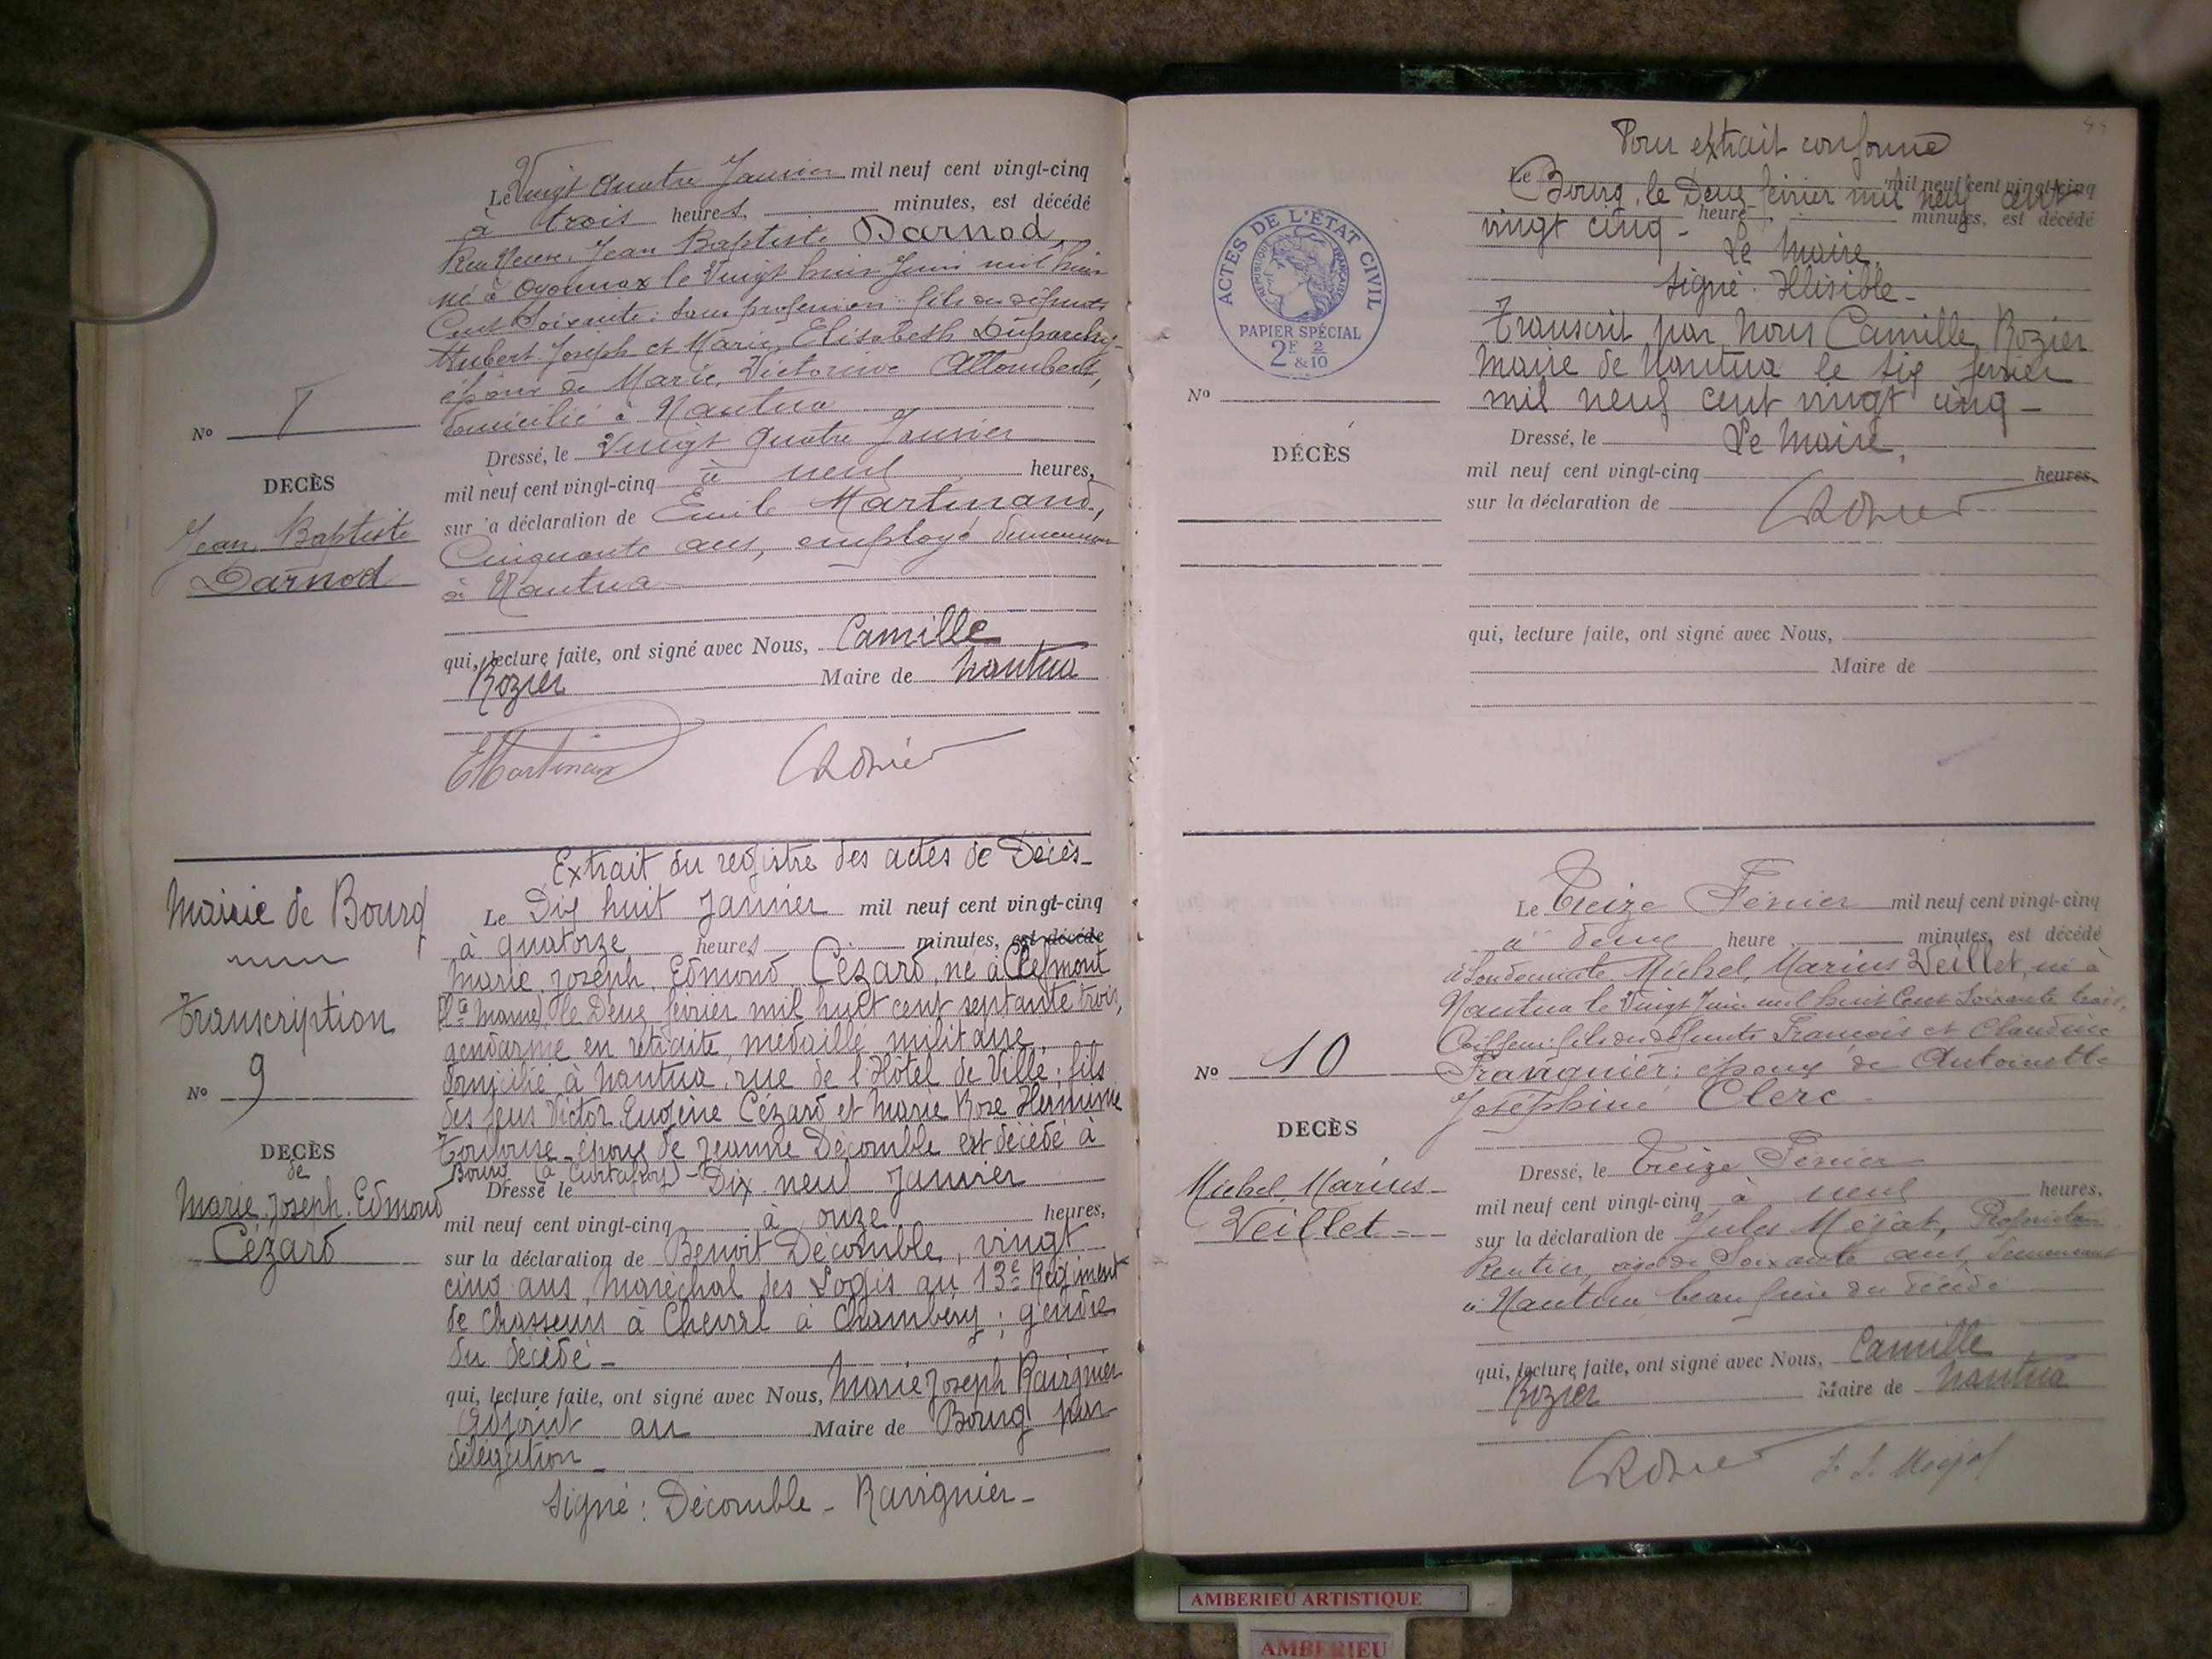 Le Vingt quatre Janvier mil neuf cent vingt-cinq
à trois heures, minutes, est décédé
Rue Neuve, Jean Baptiste Darnod
né à Oyonnax le Vingt huit Juin mil huit
Cent Soixante: sans profession: fils des défunts
Hubert Joseph et Marie, Elisabeth Duparchy
époux de Marie, Victorine Allombert,
domicilié à Nantua
Dressé, le Vingt quatre Janvier
mil neuf cent vingt-cinq à neuf heures,
sur la déclaration de Emile Martinand,
Cinquante ans, employé demeurant
à Nantua
qui, lecture faite, ont signé avec Nous, Camille
Rozier Maire de Nantua
CRozier
No
DECÈS
Jean Baptiste
Darnod
Extrait du registre des actes de Décès
Mairie de Bourg
Transcription
No 9
DECÈS
de
Marie Joseph. Edmond
Cézard
Le Dix huit Janvier mil neuf cent vingt-cinq
à quatorze heures minutes, est décédé
Marie, Joseph, Edmond Cézard, né à Clefmont
(Hte Marne), le Deux février mil huit cent septante trois,
gendarme en retraite, médaillé militaire,
domicilié à Nantua, rue de l'Hôtel de Ville; fils
des feus Victor Eugène Cézard et Marie Rose Herminie
Toulouse - époux de Jeanne Décomble est décédé à
Bourg (à Curtafray) -
Dressé le Dix neuf Janvier
mil neuf cent vingt-cinq à onze heures,
sur la déclaration de Benoit Décomble, vingt
cinq ans, Maréchal des Logis au 13e Régiment
de Chasseurs à Cheval à Chambéry; gendre
du décédé -
qui, lecture faite, ont signé avec Nous, Marie Joseph Ravignier
Adjoint au Maire de Bourg par
délégation
Signé: Décomble - Ravignier -
Pour extrait conforme
Le mil neuf cent vingt-cinq
Bourg, le Deux février mil neuf cent
heure, minutes, est décédé
vingt cinq -
Le Maire,
Signé: Illisible -
Transcrit par Nous Camille Rozier
Maire de Nantua le six février
mil neuf cent vingt cinq -
Dressé, le Le Maire,
mil neuf cent vingt-cinq heures.
sur la déclaration de CRozier
qui, lecture faite, ont signé avec Nous,
Maire de
ACTES DE L'ÉTAT CIVIL
RÉPUBLIQUE FRANÇAISE
PAPIER SPÉCIAL
2F & 2/10
No
DÉCÈS
Le Treize Février mil neuf cent vingt-cinq
à deux heure minutes, est décédé
Michel, Marius Veillet, né à
Nantua le Vingt Juin mil huit Cent Soixante trois,
Coiffeur: fils des défunts François et Claudine
Franquier: époux de Antoinette
Joséphine Clerc
Dressé, le Treize Février
mil neuf cent vingt-cinq à neuf heures,
sur la déclaration de Jules Méjat,
Rentier, agé de Soixante ans, demeurant
à Nantua beau frère du décédé
qui, lecture faite, ont signé avec Nous, Camille
Rozier Maire de Nantua
CRozier
No 10
DECÈS
Michel, Marius
Veillet
AMBERIEU ARTISTIQUE
AMBERIEU